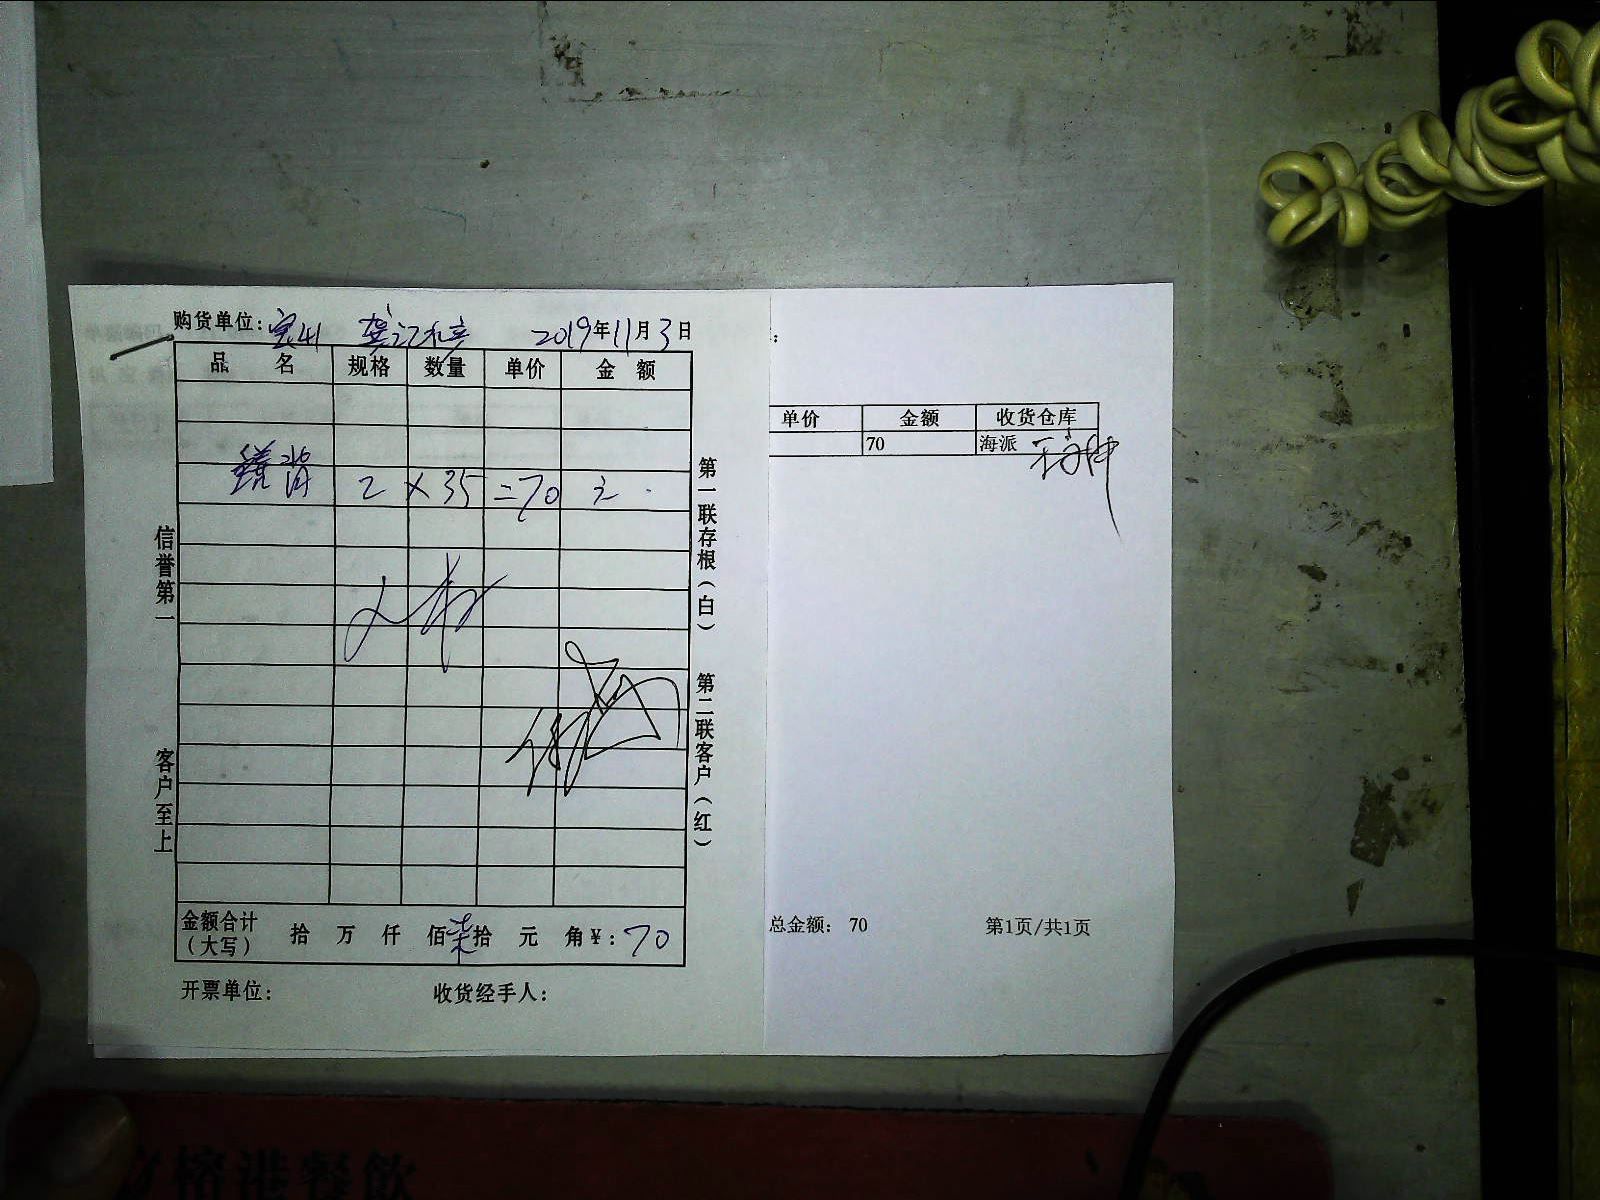 购货单位: 2019年11月3日
品名 规格 数量 单价 金额
2 × 35 = 70 元
信誉第一 客户至上
第一联存根(白) 第二联客户(红)
金额合计(大写) 拾 万 仟 佰 柒拾 元 角 ¥: 70
开票单位: 收货经手人:
单价 金额 收货仓库
70 海派
总金额: 70 第1页/共1页
榕港餐飲